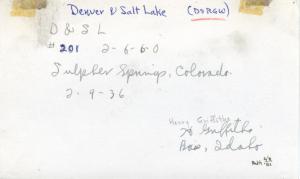 Denver & Salt Lake (D&RGW)
D & S L
# 201 2-6-6-0
Sulpher Springs, Colorado.
2-9-36
Henry Griffiths
H Griffiths
Boise, Idaho